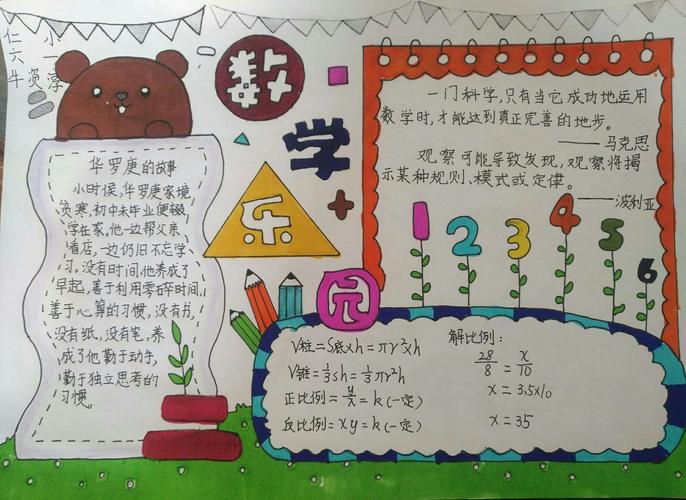 仁 小
六 一
牛 资 淳
数
学
乐
园
华罗庚的故事
小时候,华罗庚家境
贫寒,初中未毕业便辍
学在家。他一边帮父亲
看店,一边仍旧不忘学
习。没有时间,他养成了
早起,善于利用零碎时间,
善于心算的习惯,没有书,
没有纸,没有笔,养
成了他勤于动手,
勤于独立思考的
习惯。
一门科学,只有当它成功地运用
数学时,才能达到真正完善的地步。
——马克思
观察可能导致发现,观察将揭
示某种规则、模式或定律。
——波利亚
1 2 3 4 5 6
V柱=S底×h=πr²×h
V锥=1/3sh=1/3πr²h
正比例=y/x=k(一定)
反比例=xy=k(一定)
解比例:
28/8=x/10
x=3.5×10
x=35